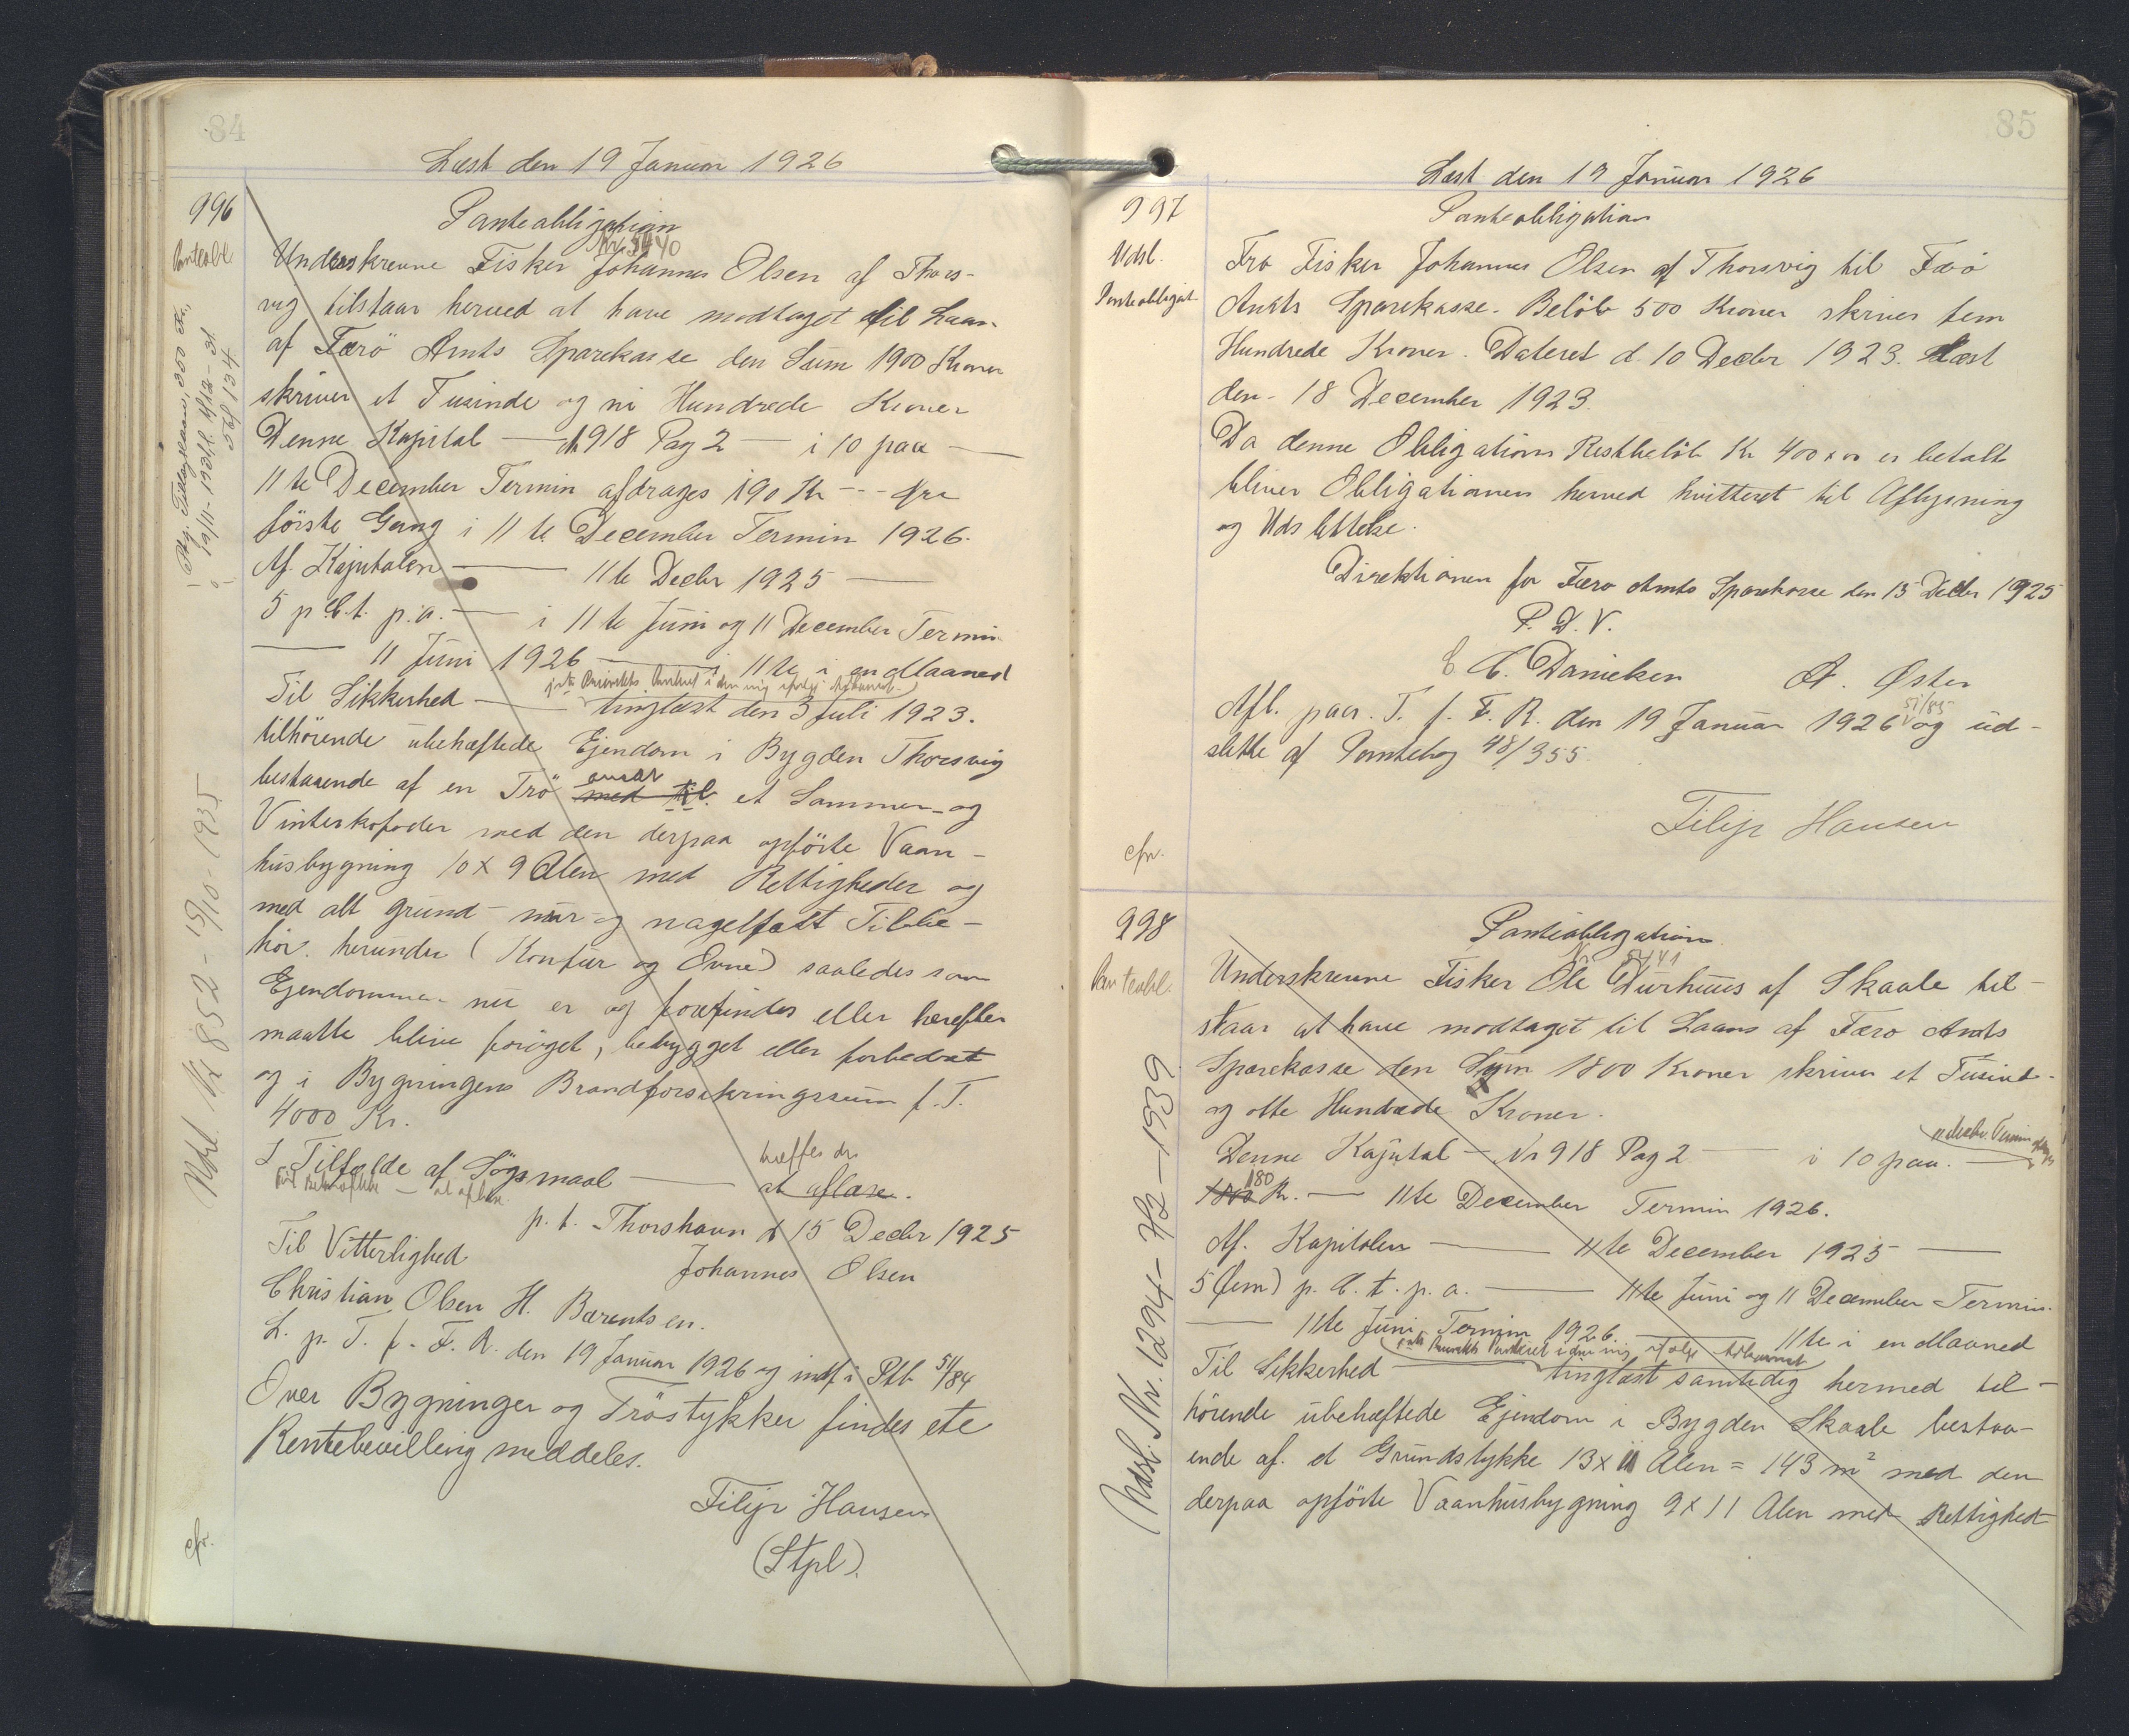 84
Læst den 19 Januar 1926
996
Panteobl.
Panteobligation
Nr 5440
Underskrevne Fisker Johannes Olsen af Thors-
vig tilstaar herved at have modtaget til Laan
af Færö Amts Sparekasse den Sum 1900 Kroner
skriver et Tusinde og ni Hundrede Kroner
Denne Kapital — 918 Pag 2 — i 10 paa —
11te December Termin afdrages 190 Kr - - - fra
förste Gang i 11te December Termin 1926.
Af Kapitalen — 11te Decbr 1925 —
5 p Ct. p.a. — i 11te Juni og 11 December Termin
— 11 Juni 1926 — 11te i en Maaned
Til Sikkerhed — tinglæst den 3 Juli 1923.
tilhörende ubehæftede Ejendom i Bygden Thorsvig
bestaaende af en Trö med til et Sommer- og
ansat
Vinterkofoder med den derpaa opförte Vaan-
husbygning 10 x 9 Alen med Rettigheder og
med alt grund- mur- og nagelfast Tilbe-
hör. herunder (Komfur og Ovne) saaledes som
Ejendommen nu er og forefindes eller herefter
maatte blive foröget, bebygget eller forbedret
og i Bygningens Brandforsikringssum f. T.
4000 Kr.
I Tilfælde af Sögsmaal — at aflæse.
træffes der
p.t. Thorshavn d 15 Decbr 1925
Til Vitterlighed
Johannes Olsen
Christian Olsen H. Barentsen.
L. p. T. f. F. R. den 19 Januar 1926 og indf i Ptb 51/84
Over Bygninger og Tröstykker findes ete
Rentebevilling meddeles.
Filip Hansen
(Stpl).
cfr.
Udsl. Nr 852 - 15/10 - 1935
85
Læst den 19 Januar 1926
997
Udsl.
Panteobligat.
Panteobligation
Fra Fisker Johannes Olsen af Thorsvig til Færö
Amts Sparekasse. Belöb 500 Kroner skriver fem
Hundrede Kroner. Dateret d. 10 Decbr 1923. Læst
den - 18 December 1923.
Da denne Obligations Restbelöb Kr 400 x 00 er betalt
bliver Obligationen herved kvitteret til Aflysning
og Udslettelse.
Direktionen for Færo Amts Sparekasse den 15 Decbr 1925
P. D. V.
C C. Danielsen A. Øster
51/85
Afl. paa. T. f. F. R. den 19 Januar 1926 og ud-
slette af Pantebog 48/355.
Filip Hansen
cfr.
998
Panteobl.
Panteobligation
Nr 5441
Underskrevne Fisker Ole Durhuus af Skaale til-
staar at have modtaget til Laans af Færo Amts
Sparekasse den Sum 1800 Kroner skriver et Tusind-
og otte Hundrede Kroner.
Denne Kapital — Nr 918 Pag 2 — i 10 paa. —
180
1800 Kr. — 11te December Termin 1926.
Af. Kapitalen — 11te December 1925 —
5 (fem) p. C. t. p. a. — 11te Juni og 11 December Termin.
— 11te Juni Termin 1926. — 11te i en Maaned
Til Sikkerhed — tinglæst samtidig hermed til-
hörende ubehæftede Ejendom i Bygden Skaale bestaa-
ende af. et Grundstykke 13 x 11 Alen = 143 m² med den
derpaa opförte Vaanhusbygning 9 x 11 Alen med Rettighed-
Udsl. Nr. 1294 - 7/2 - 1939